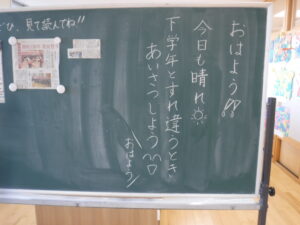 おはよう
今日も晴れ
下学年とすれ違うとき
あいさつしよう
おはよう
ぜひ、見て読んでね!!